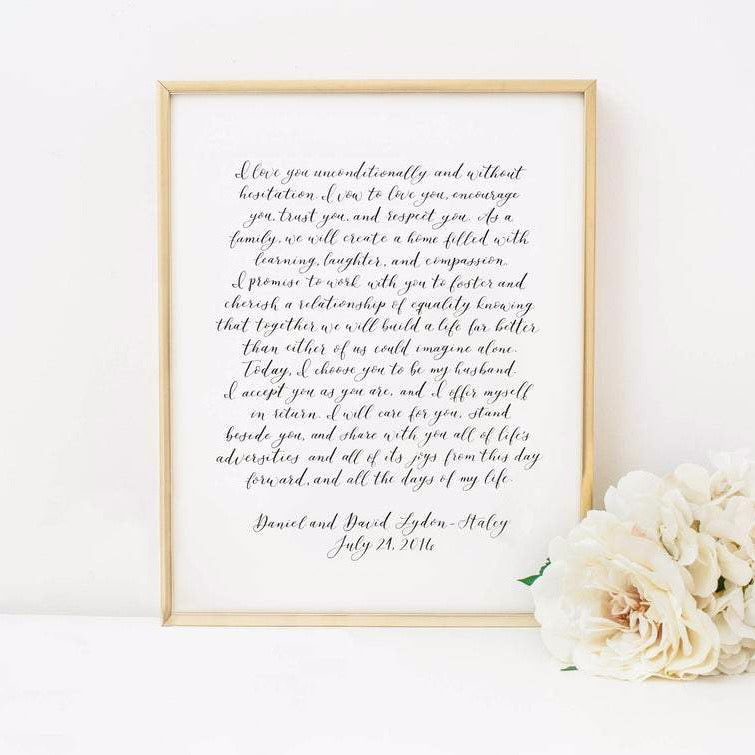 I love you unconditionally and without
hesitation. I vow to love you, encourage
you, trust you, and respect you. As a
family, we will create a home filled with
learning, laughter, and compassion.
I promise to work with you to foster and
cherish a relationship of equality knowing
that together we will build a life far better
than either of us could imagine alone.
Today, I choose you to be my husband.
I accept you as you are, and I offer myself
in return. I will care for you, stand
beside you, and share with you all of life's
adversities and all of its joys from this day
forward, and all the days of my life.
Daniel and David Lydon-Staley
July 21, 2016